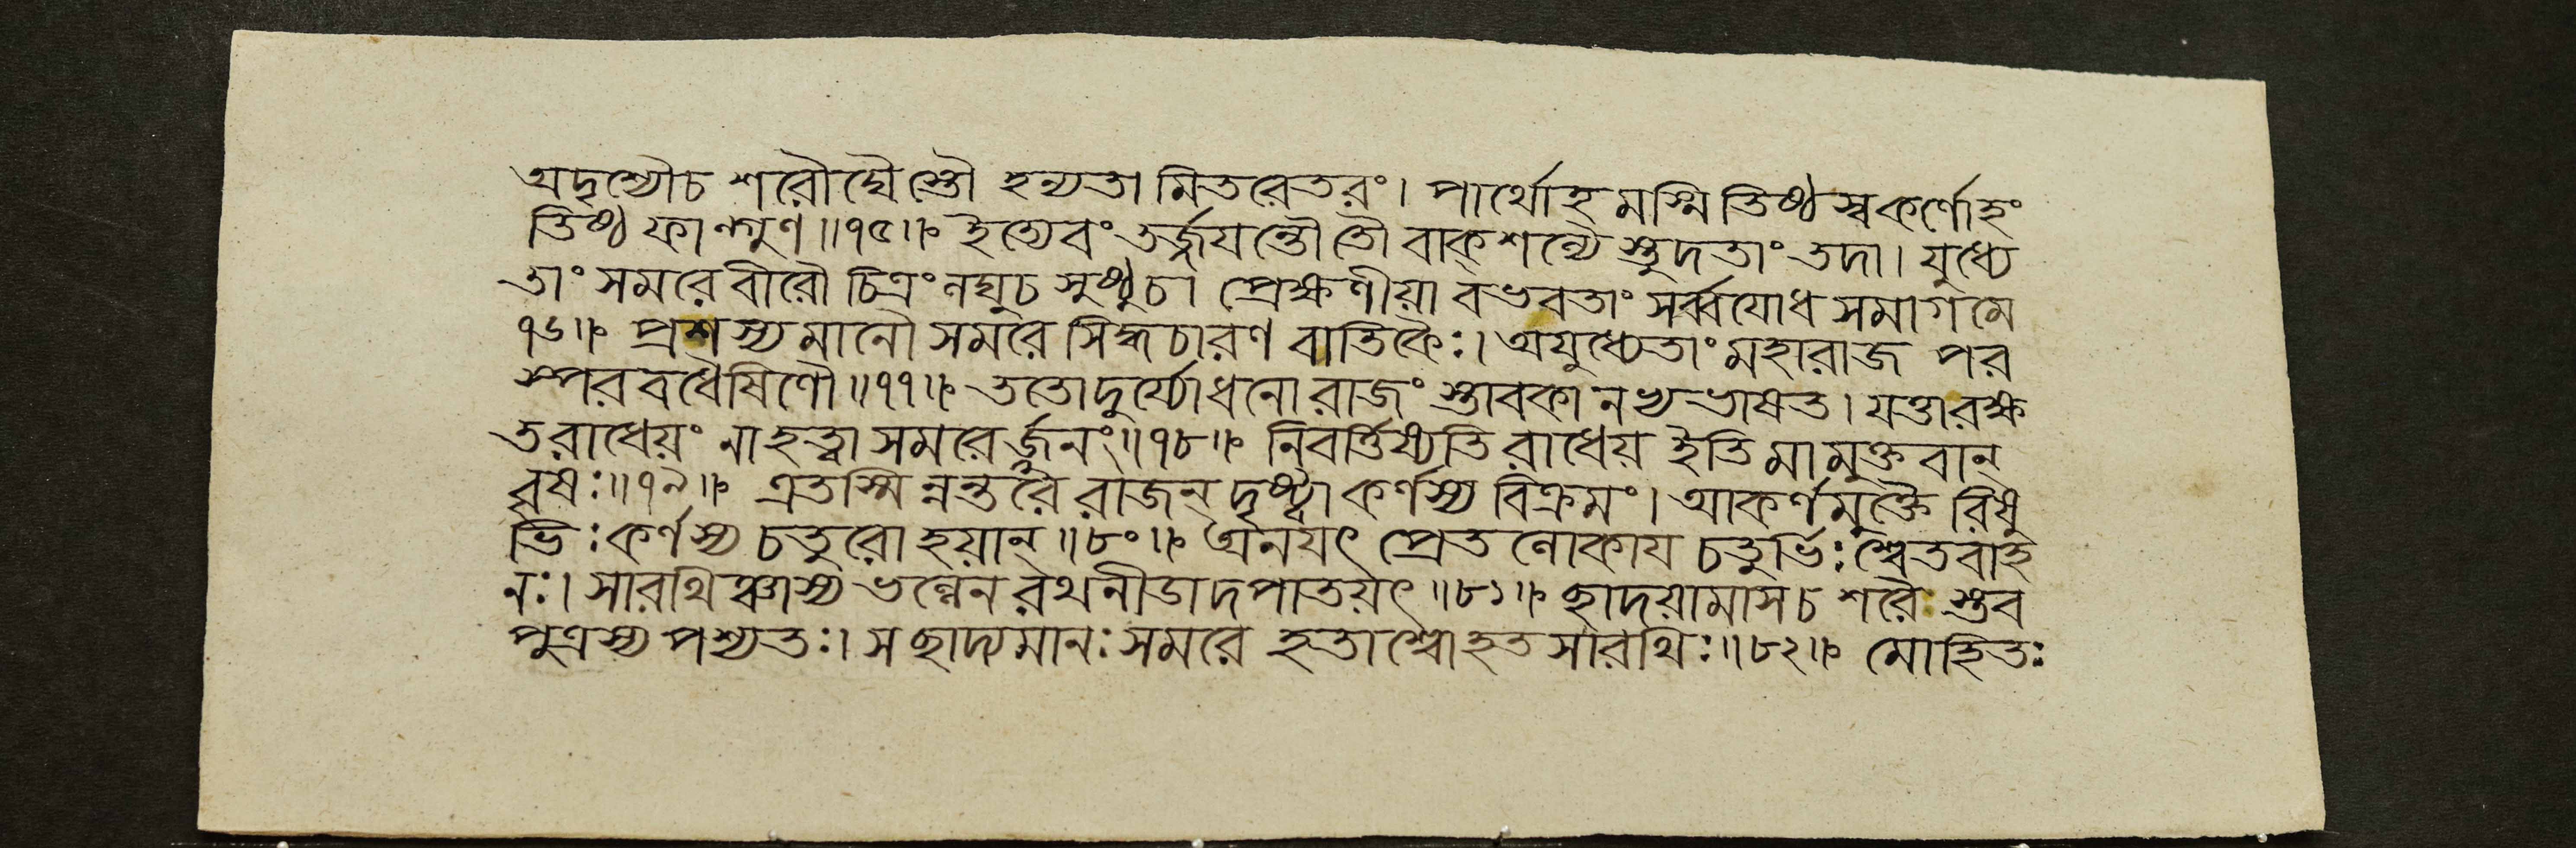 অদৃশ্যৌচ শরৌঘৈস্তৌ হন্যতা মিতরেতরং। পার্থোহমস্মি তিষ্ঠ স্বকর্ণোহং
তিষ্ঠ ফাল্গুণ॥৭৫॥ ইত্যেবং তর্জ্জয়ন্তৌ তৌ বাক্শল্যৈ স্তুদতাং তদা। যুধ্যে
তাং সমরে বীরৌ চিত্রং লঘুচ সুষ্ঠুচ। প্রেক্ষণীয়া বভবতাং সর্ব্বযোধ সমাগমে
৭৬॥ প্রশস্যমানৌ সমরে সিদ্ধচারণ বাতিকৈঃ। অযুধ্যেতাং মহারাজ পর
স্পর বধৈষিণৌ॥৭৭॥ ততো দুর্য্যোধনো রাজং স্তাবকা নভ্যভাষত। যত্তারক্ষ
ত রাধেয়ং নাহত্বা সমরের্জ্জুনং॥৭৮॥ নিবর্ত্তিষ্যতি রাধেয় ইতি মামুক্তবান্
বৃষঃ॥৭৯॥ এতস্মিন্নন্তরে রাজন্ দৃষ্ট্বা কর্ণস্য বিক্রমং। আকর্ণমুক্তৈ রিষু
ভিঃ কর্ণস্য চতুরো হয়ান্॥৮০॥ অনয়ৎ প্রেতলোকায় চতুর্ভিঃ শ্বেতবাহ
নঃ। সারথিঞ্চাস্য ভল্লেন রথনীডাদপাতয়ৎ॥৮১॥ ছাদয়ামাস চ শরৈ স্তব
পুত্রস্য পশ্যতঃ। স ছাদ্যমানঃ সমরে হতাশ্বোহত সারথিঃ॥৮২॥ মোহিতঃ